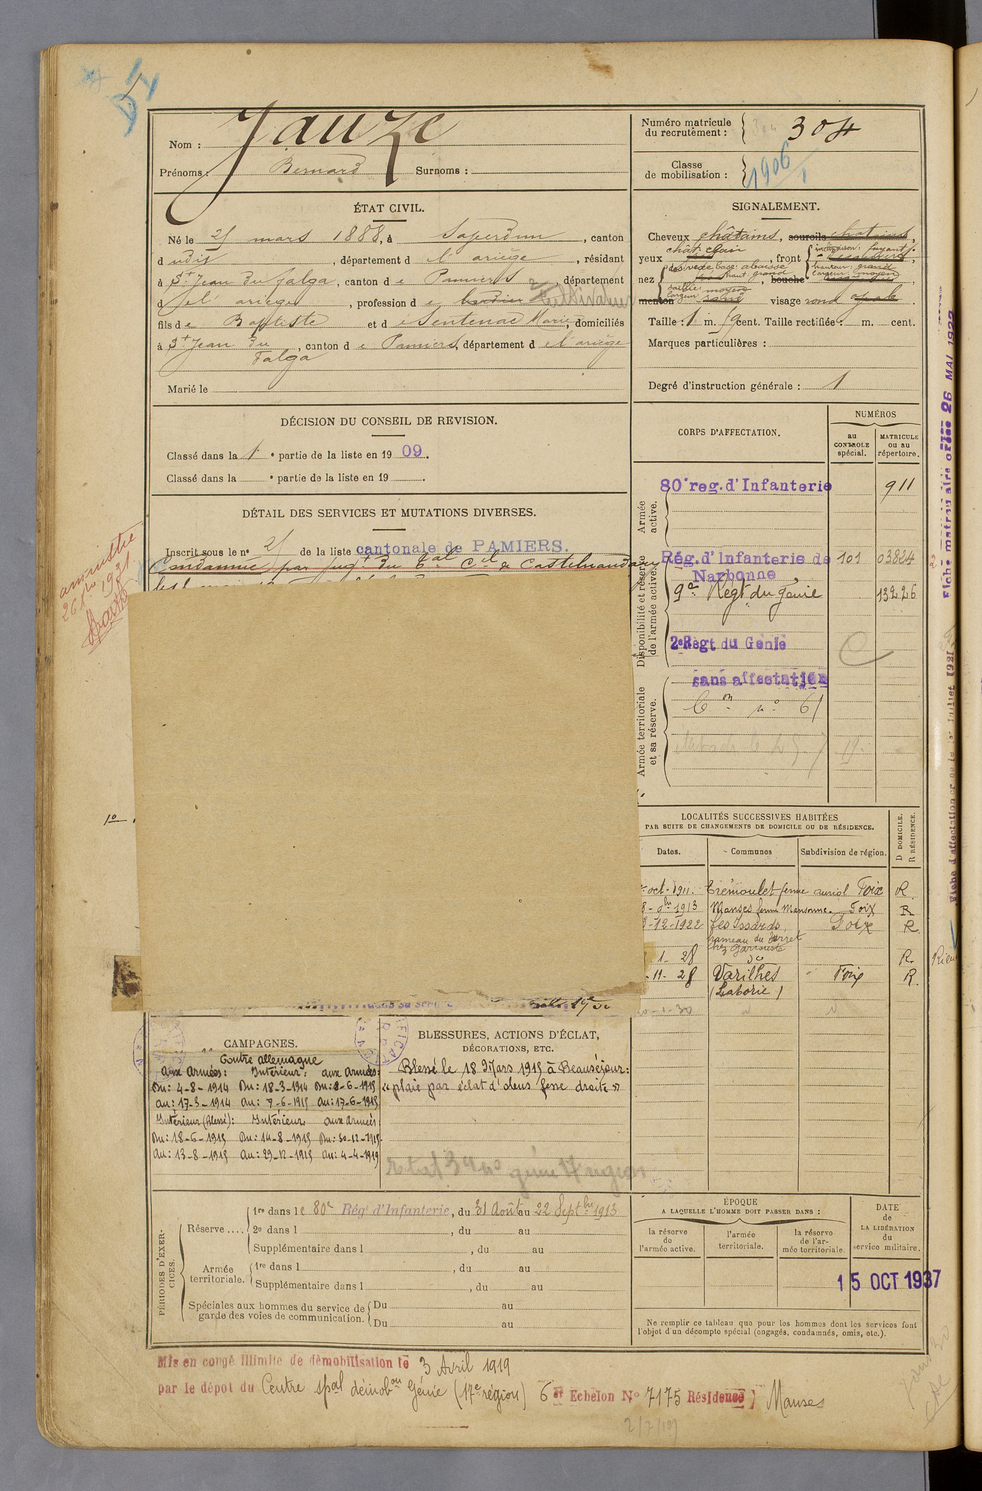 Nom : Jauze
Prénoms : Bernard Surnoms :
Numéro matricule du recrutement : 304
Classe de mobilisation : 1906
ÉTAT CIVIL.
Né le 21 mars 1888, à Saverdun, canton
d udit, département d e l'ariège, résidant
à St Jean du falga, canton d e Pamiers, département
d e l'ariège, profession d e Cultivateur
fils de Baptiste et d e Sentenac Marie, domiciliés
à St Jean du Falga, canton d e Pamiers, département d e l'ariège
Marié le
SIGNALEMENT.
Cheveux châtains, sourcils châtains,
yeux chat. clair, front inclinaison : fuyant
hauteur : grand
nez dos : vexe base : abaissée
haut : grand, bouche moyenne
menton rond visage rond ovale
Taille : 1 m. cent. Taille rectifiée : m. cent.
Marques particulières :
Degré d'instruction générale : 1
DÉCISION DU CONSEIL DE REVISION.
Classé dans la 1e partie de la liste en 1909.
Classé dans la e partie de la liste en 19
DÉTAIL DES SERVICES ET MUTATIONS DIVERSES.
Inscrit sous le no 21 de la liste cantonale de PAMIERS.
Condamné par jugt du bal Cel de Castelnaudary
amnistie
1921
CORPS D'AFFECTATION.
NUMÉROS
AU CONTROLE spécial.
MATRICULE ou au répertoire.
Armée active.
80e reg. d'Infanterie 911
Disponibilité et réserve de l'armée active.
Rég. d'Infanterie de Narbonne 101 03824
9e Regt du Génie 13226
2e Régt du Génie
sans affectation
Armée territoriale et sa réserve.
Con no 61
LOCALITÉS SUCCESSIVES HABITÉES
PAR SUITE DE CHANGEMENTS DE DOMICILE OU DE RÉSIDENCE.
Dates. Communes Subdivision de région. D DOMICILE. R RÉSIDENCE.
oct. 1911. Trémoulet ferme auriol Foix R
8bre 1913 Manses ferme Mansonne Foix R
12-1922 Les Issards, Foix R
hameau du
1-28 do R
11-28 Varilhes Foix R
(Laborie)
1-30
1o
CAMPAGNES.
Contre allemagne
aux Armées : Intérieur : aux Armées :
Du : 4-8-1914 Du : 18-3-1914 Du : 8-6-1915
au : 17-3-1914 au : 7-6-1915 au : 17-6-1915
Intérieur (Blessé) : Intérieur aux armées
Du : 18-6-1915 Du : 14-8-1915 Du : 30-12-1915
au : 13-8-1915 au : 29-12-1915 au : 4-4-1919
BLESSURES, ACTIONS D'ÉCLAT,
DÉCORATIONS, ETC.
Blessé le 18 Mars 1915 à Beauséjour :
"plaie par éclat d'obus fesse droite"
PÉRIODES D'EXERCICES.
Réserve .... 1re dans le 80e Rég' d'Infanterie, du 31 Août au 22 Septbre 1913
2e dans l , du au
Supplémentaire dans l , du au
Armée territoriale. 1re dans l , du au
Supplémentaire dans l , du au
Spéciales aux hommes du service de garde des voies de communication. Du au
Du au
ÉPOQUE
A LAQUELLE L'HOMME DOIT PASSER DANS :
la réserve de l'armée active.
l'armée territoriale.
la réserve de l'armée territoriale.
DATE de LA LIBÉRATION du service militaire.
15 OCT 1937
Ne remplir ce tableau que pour les hommes dont les services font
l'objet d'un décompte spécial (engagés, condamnés, omis, etc.).
Mis en congé illimité de démobilisation le 3 Avril 1919
par le dépôt du Centre spal démobon Génie (17e région) 6 Echelon No 7175 Résidence Manses
26 MAI 1922